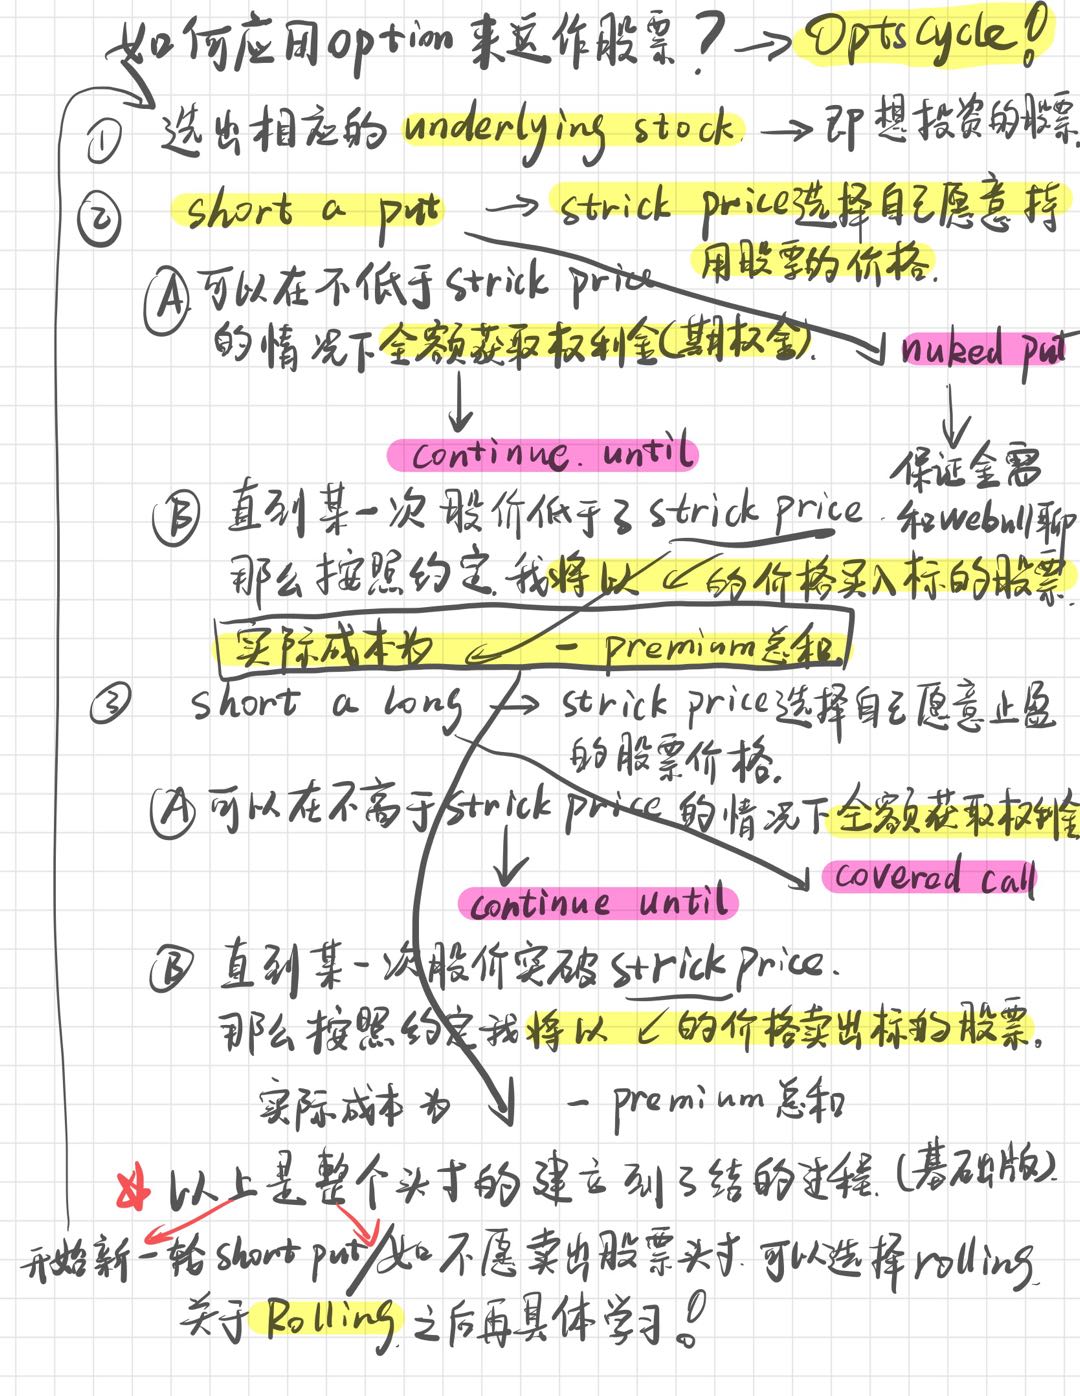 如何应用option来运作股票？→Optscycle！
① 选出相应的 underlying stock. → 即想投资的股票.
② short a put → strick price选择自己愿意持
用股票的价格.
Ⓐ 可以在不低于strick price
的情况下全额获取权利金(期权金).
nuked put
continue. until
保证金需
和webull聊
Ⓑ 直到某一次股价低于了strick price.
那么按照约定.我将以 ↙ 的价格买入标的股票.
实际成本为 ↙ − premium总和.
③ short a long → strick price选择自己愿意止盈
的股票价格.
Ⓐ 可以在不高于strick price的情况下全额获取权利金
covered call
continue until
Ⓑ 直到某一次股价突破strick price.
那么按照约定我将以 ↙ 的价格卖出标的股票.
实际成本为 ↘ − premium总和
以上是整个头寸的建立到了结的过程.(基础版).
开始新一轮short put/如不愿卖出股票头寸.可以选择rolling.
关于Rolling.之后再具体学习！